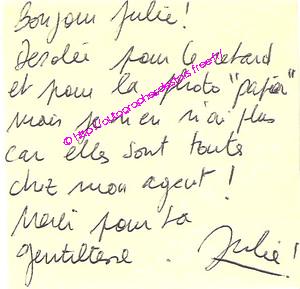 Bonjour Julie !
Désolée pour le retard
et pour la photo "papier"
mais je n'en n'ai plus
car elles sont toute
chez mon agent !
Merci pour ta
gentillesse. Julie !
© http://autographesdestars.free.fr/